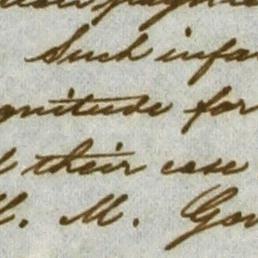 Such infa
gnitude for
their case
M. Gov